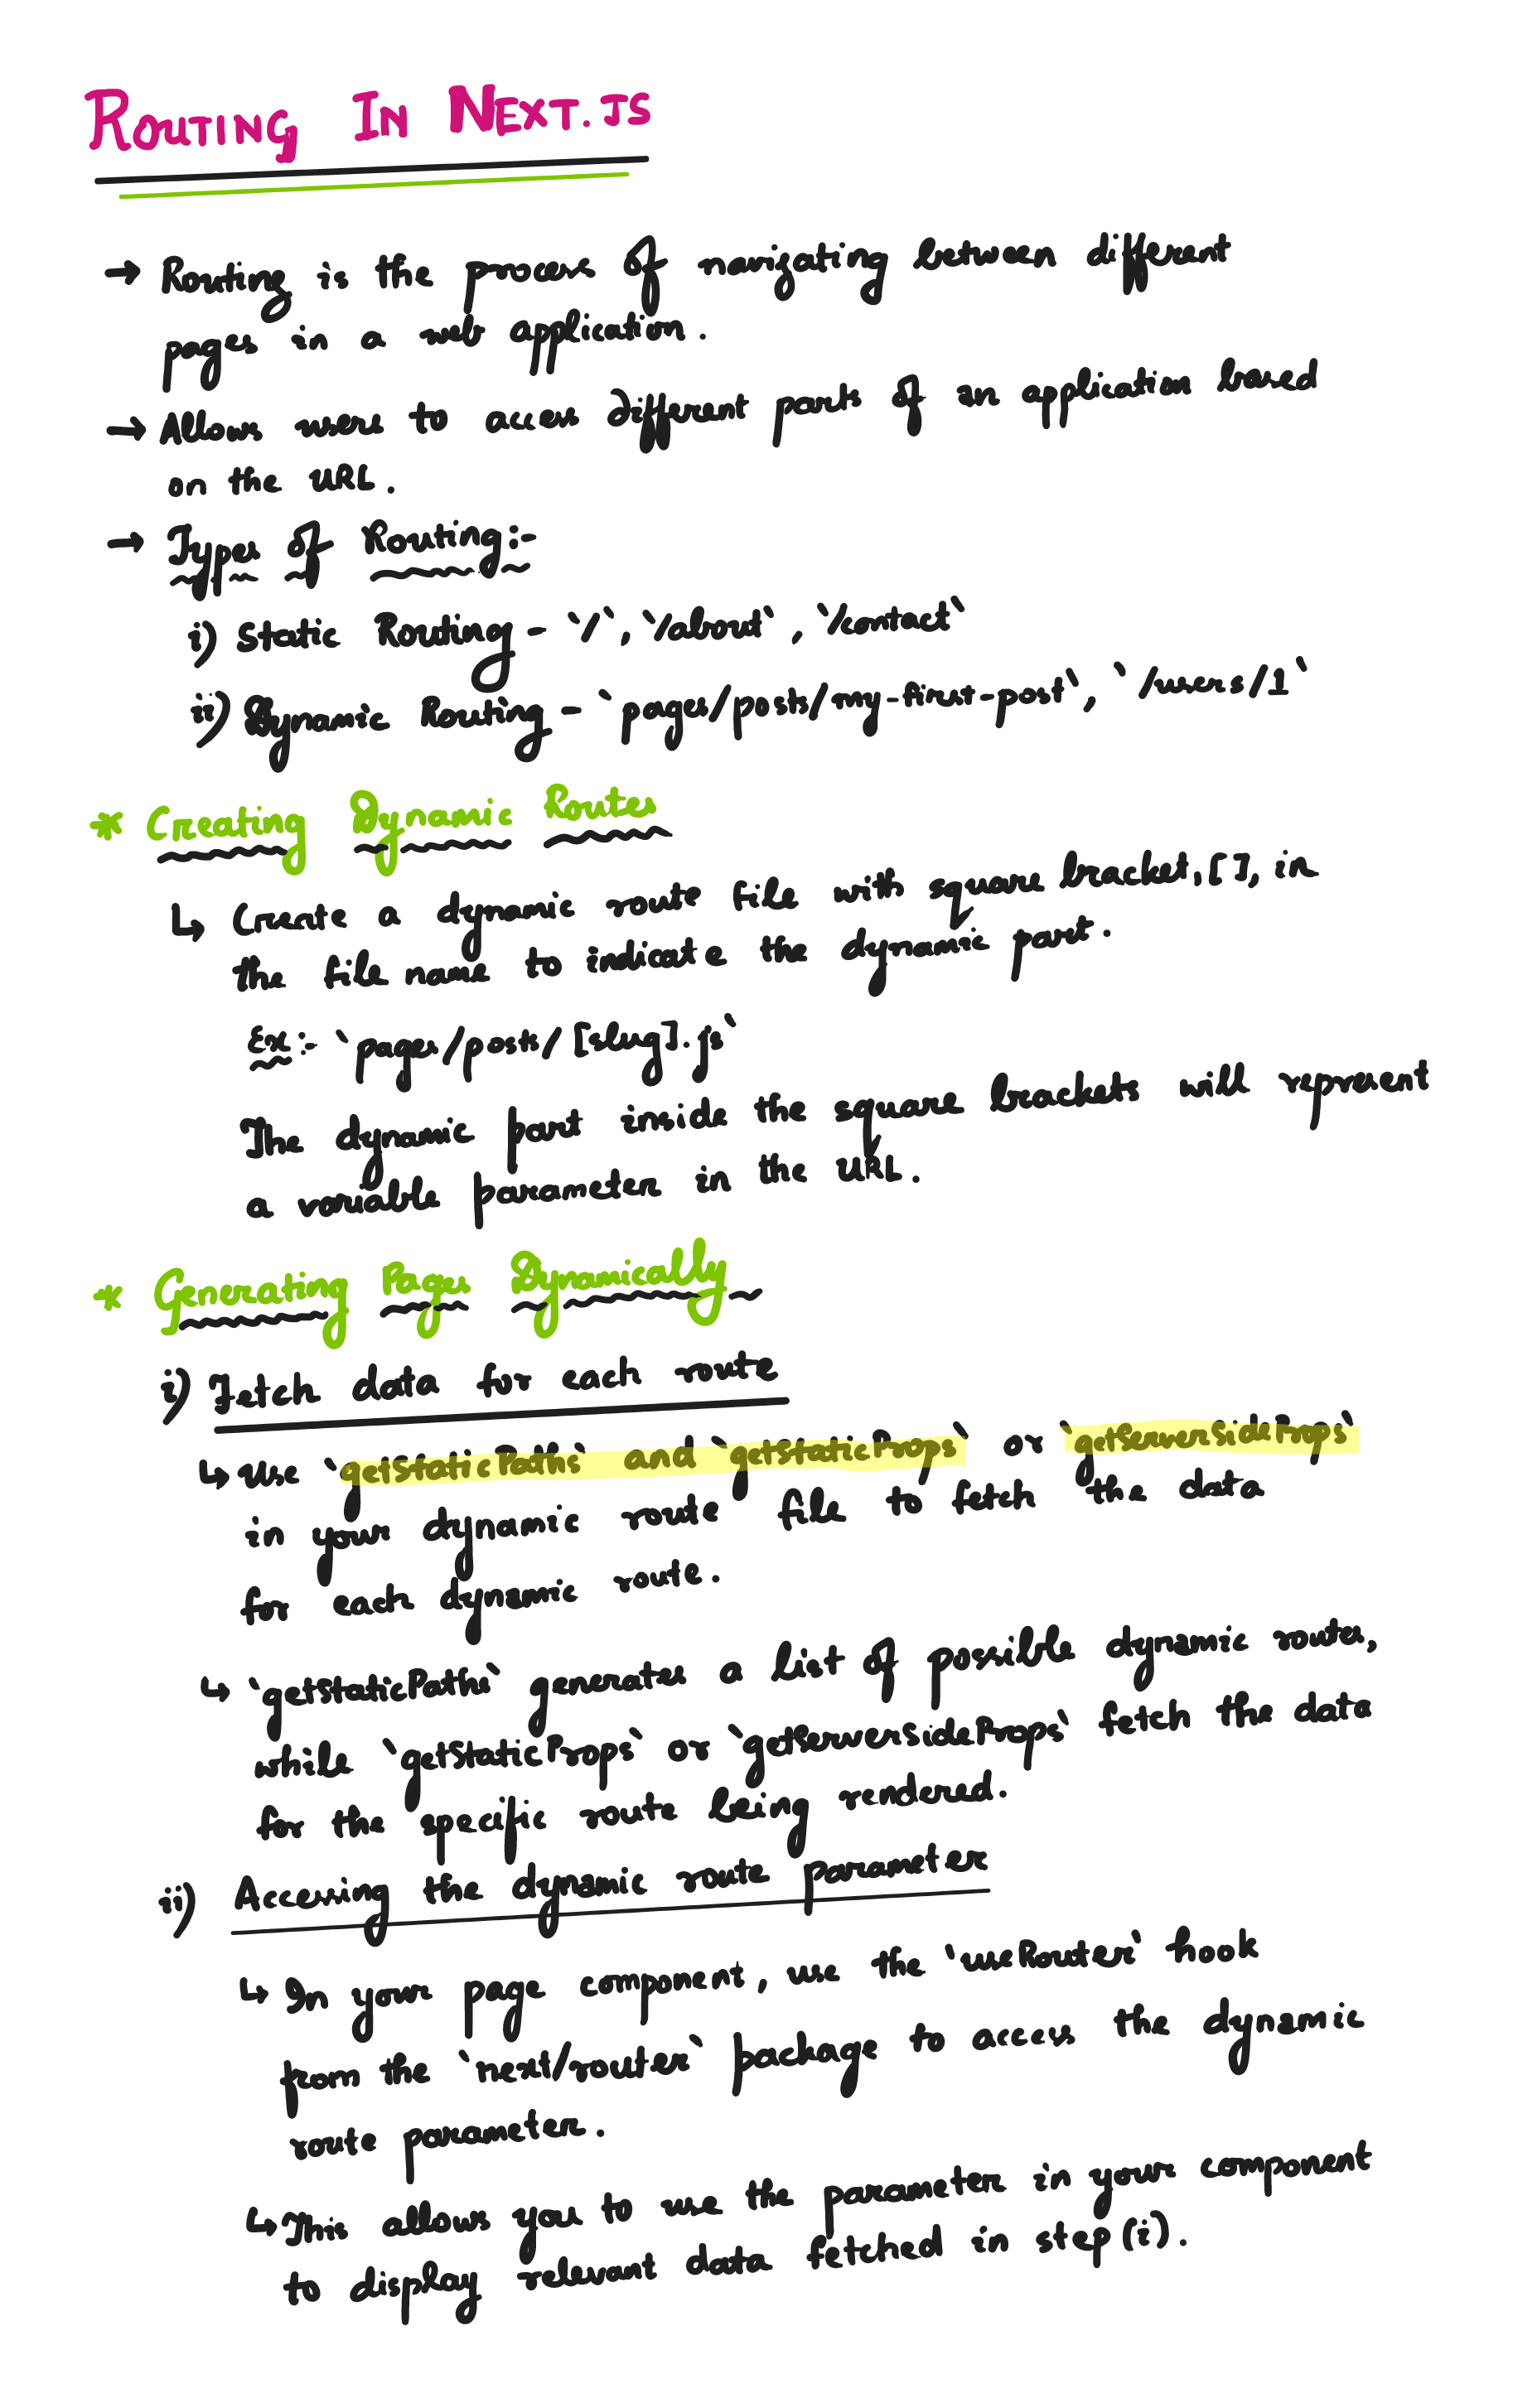 ROUTING IN NEXT.JS
→ Routing is the process of navigating between different
pages in a web application.
→ Allows users to access different parts of an application based
on the URL.
→ Types of Routing:-
i) Static Routing - `/`, `/about`, `/contact`
ii) Dynamic Routing - `pages/posts/my-first-post`, `/users/1`
* Creating Dynamic Routes
↳ Create a dynamic route file with square bracket, [], in
the file name to indicate the dynamic part.
Ex:- `pages/posts/[slug].js`
The dynamic part inside the square brackets will represent
a variable parameter in the URL.
* Generating Pages Dynamically
i) Fetch data for each route
↳ Use `getStaticPaths` and `getStaticProps` or `getServerSideProps`
in your dynamic route file to fetch the data
for each dynamic route.
↳ `getStaticPaths` generates a list of possible dynamic routes,
while `getStaticProps` or `getServerSideProps` fetch the data
for the specific route being rendered.
ii) Accessing the dynamic route parameter
↳ In your page component, use the `useRouter` hook
from the `next/router` package to access the dynamic
route parameter.
↳ This allows you to use the parameter in your component
to display relevant data fetched in step (i).